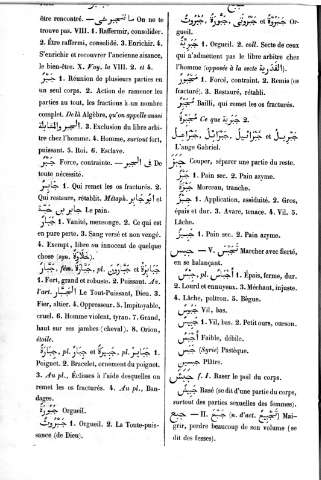 être rencontré. — On ne te
trouve pas. VIII. 1. Raffermir, consolider.
2. Être raffermi, consolidé. 3. Enrichir. 4.
S'enrichir et recouvrer l'ancienne aisance,
le bien-être. X. Voy. la VIII. 2. et 4.
جَبْرٌ 1. Réunion de plusieurs parties en
un seul corps. 2. Action de ramener les
parties au tout, les fractions à un nombre
complet. De là Algèbre, qu'on appelle aussi
الجبر والمقابلة. 3. Exclusion du libre arbi-
tre chez l'homme. 4. Homme, surtout fort,
puissant. 5. Roi. 6. Esclave.
جَبْرٌ Force, contrainte. — في الجبر De
toute nécessité.
جَابِرٌ 1. Qui remet les os fracturés. 2.
Qui restaure, rétablit. Métaph. أبو جابر et
جابر بن حبة Le pain.
جُبَارٌ 1. Vanité, mensonge. 2. Ce qui est
en pure perte. 3. Sang versé et non vengé.
4. Exempt, libre ou innocent de quelque
chose (syn. ).
جَبَّارٌ, fém. ة, pl. جبارون et جبابرة
1. Fort, grand et robuste. 2. Puissant. Av.
l'art. الجبار Le Tout-Puissant, Dieu. 3.
Fier, altier. 4. Oppresseur. 5. Impitoyable,
cruel. 6. Homme violent, tyran. 7. Grand,
haut sur ses jambes (cheval). 8. Orion,
étoile.
جِبَارَةٌ, pl. et جبيرة, pl. جبائر 1.
Poignet. 2. Bracelet, ornement du poignet.
3. Au pl., Éclisses à l'aide desquelles on
remet les os fracturés. 4. Au pl., Ban-
dages.
Orgueil.
جَبَرُوتٌ 1. Orgueil. 2. La Toute-puis-
sance (de Dieu).
et Or-
gueil.
1. Orgueil. 2. coll. Secte de ceux
qui n'admettent pas le libre arbitre chez
l'homme (opposée à la secte القدرية).
مجبور 1. Forcé, contraint. 2. Remis (os
fracturé). 3. Restauré, rétabli.
Bailli, qui remet les os fracturés.
Ce que 2.
جبريل, جبرائيل, جبرئيل
L'ange Gabriel.
جَبَزَ Couper, séparer une partie du reste.
1. Pain sec. 2. Pain azyme.
Morceau, tranche.
1. Application, assiduité. 2. Gros,
épais et dur. 3. Avare, tenace. 4. Vil. 5.
Lâche.
جبيز 1. Pain sec. 2. Pain azyme.
جبس — V. تجبس Marcher avec fierté,
en se balançant.
جِبْسٌ, pl. أجباس 1. Épais, ferme, dur.
2. Lourd et ennuyeux. 3. Méchant, injuste.
4. Lâche, poltron. 5. Bègue.
Vil, bas.
1. Vil, bas. 2. Petit ours, ourson.
Faible, débile.
جبس (Syrie) Pastèque.
جبسين Plâtre.
جبش f. I. Raser le poil du corps.
جبيش Rasé (se dit d'une partie du corps,
surtout des parties sexuelles des femmes).
جبع — II. جبّع (n. d'act. تجبيع) Mai-
grir, perdre beaucoup de son volume (se
dit des fesses).